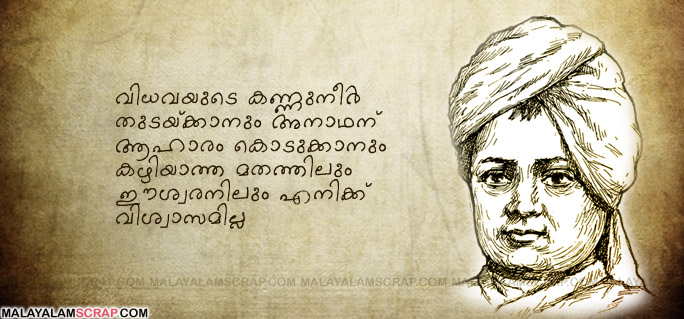 വിധവയുടെ കണ്ണുനീർ
തുടയ്ക്കാനും അനാഥന്
ആഹാരം കൊടുക്കാനും
കഴിയാത്ത മതത്തിലും
ഈശ്വരനിലും എനിക്ക്
വിശ്വാസമില്ല
SCRAP.COM MALAYALAMSCRAP.COM MALAYALAMSCRAP.COM MALAYALAMSCRAP.COM
MALAYALAMSCRAP.COM